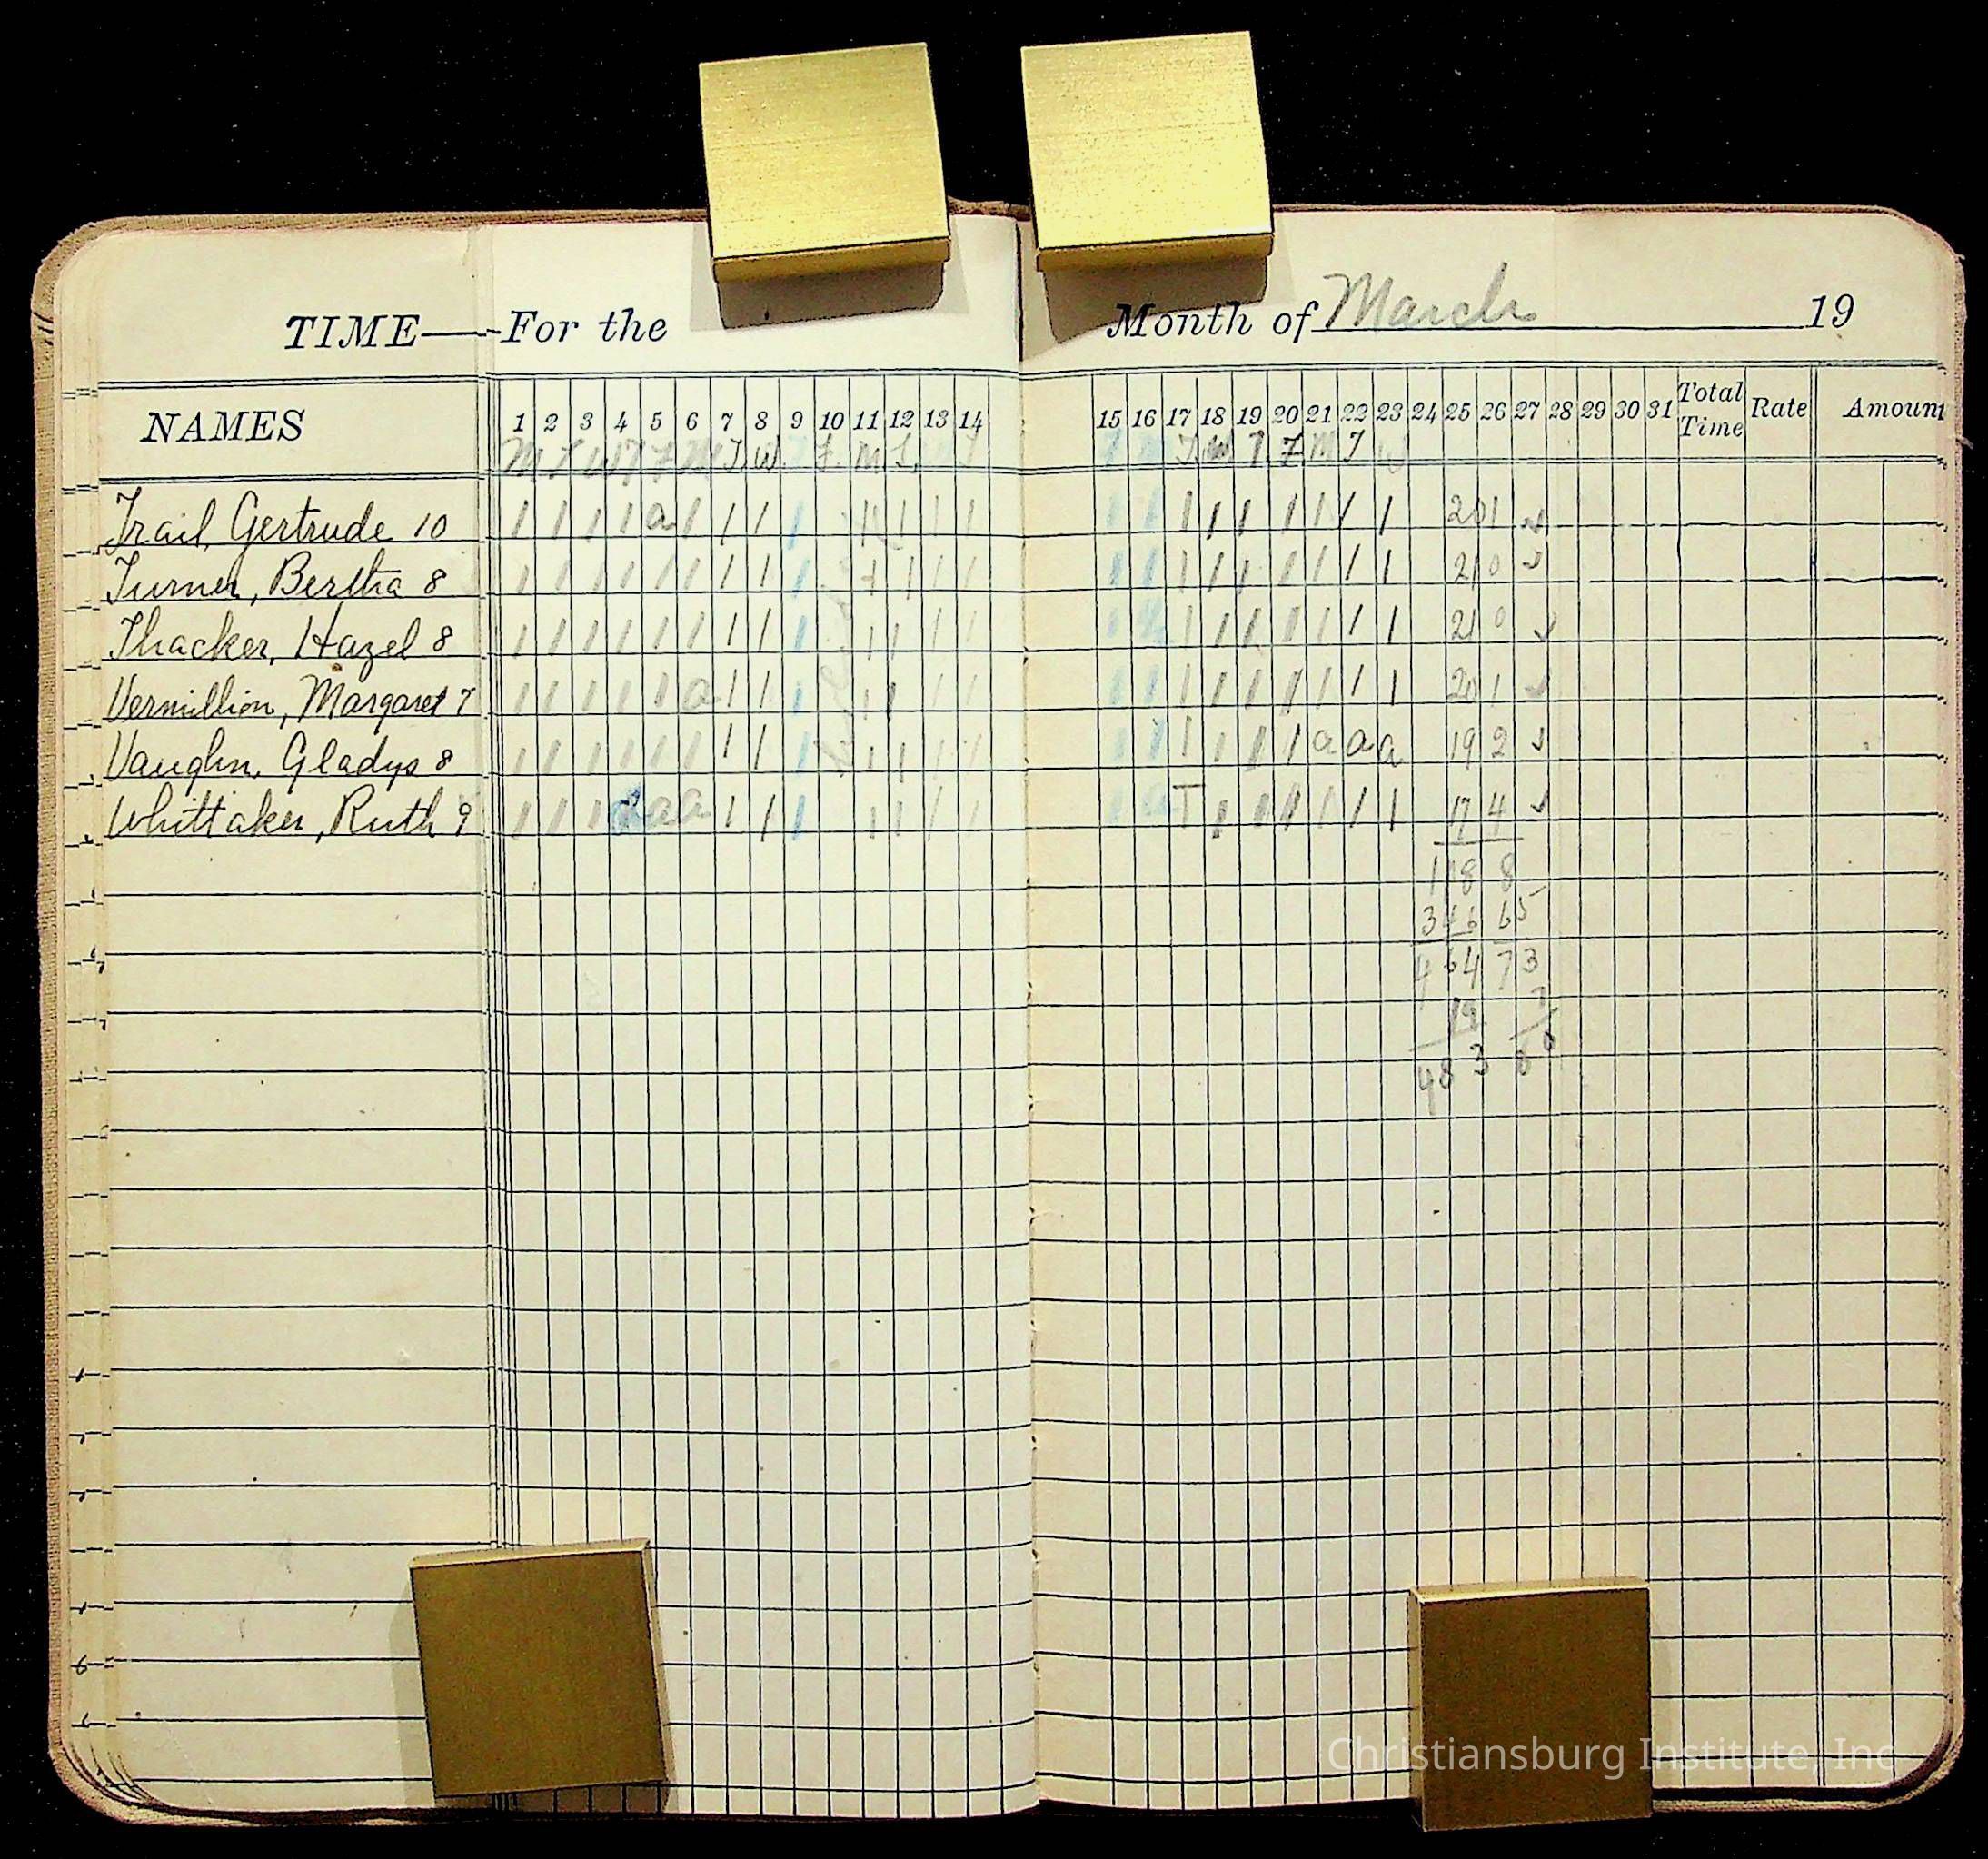 TIME—For the Month of March 19
NAMES 1 2 3 4 5 6 7 8 9 10 11 12 13 14 15 16 17 18 19 20 21 22 23 24 25 26 27 28 29 30 31 Total Time Rate Amount
M T W T F M T. W. F. M T. T T. W T F M T W
Trail, Gertrude 10 / / / / a / / / / / / / / / / / / / / / / / 20 1 ✓
Turner, Bertha 8 / / / / / / / / / / / / / / / / / / / / / / 21 0 ✓
Thacker, Hazel 8 / / / / / / / / / / / / / / / / / / / / / / 21 0 ✓
Vermillion, Margaret 7 / / / / / a / / / / / / / / / / / / / / / / 20 1 ✓
Vaughn, Gladys 8 / / / / / / / / / / / / / / / / / / / a a a 19 2 ✓
Whittaker, Ruth 9 / / / a a a / / / / / / / / a T / / / / / / 17 4 ✓
118 8
346 65
464 73
19 7
483 80
Christiansburg Institute, Inc